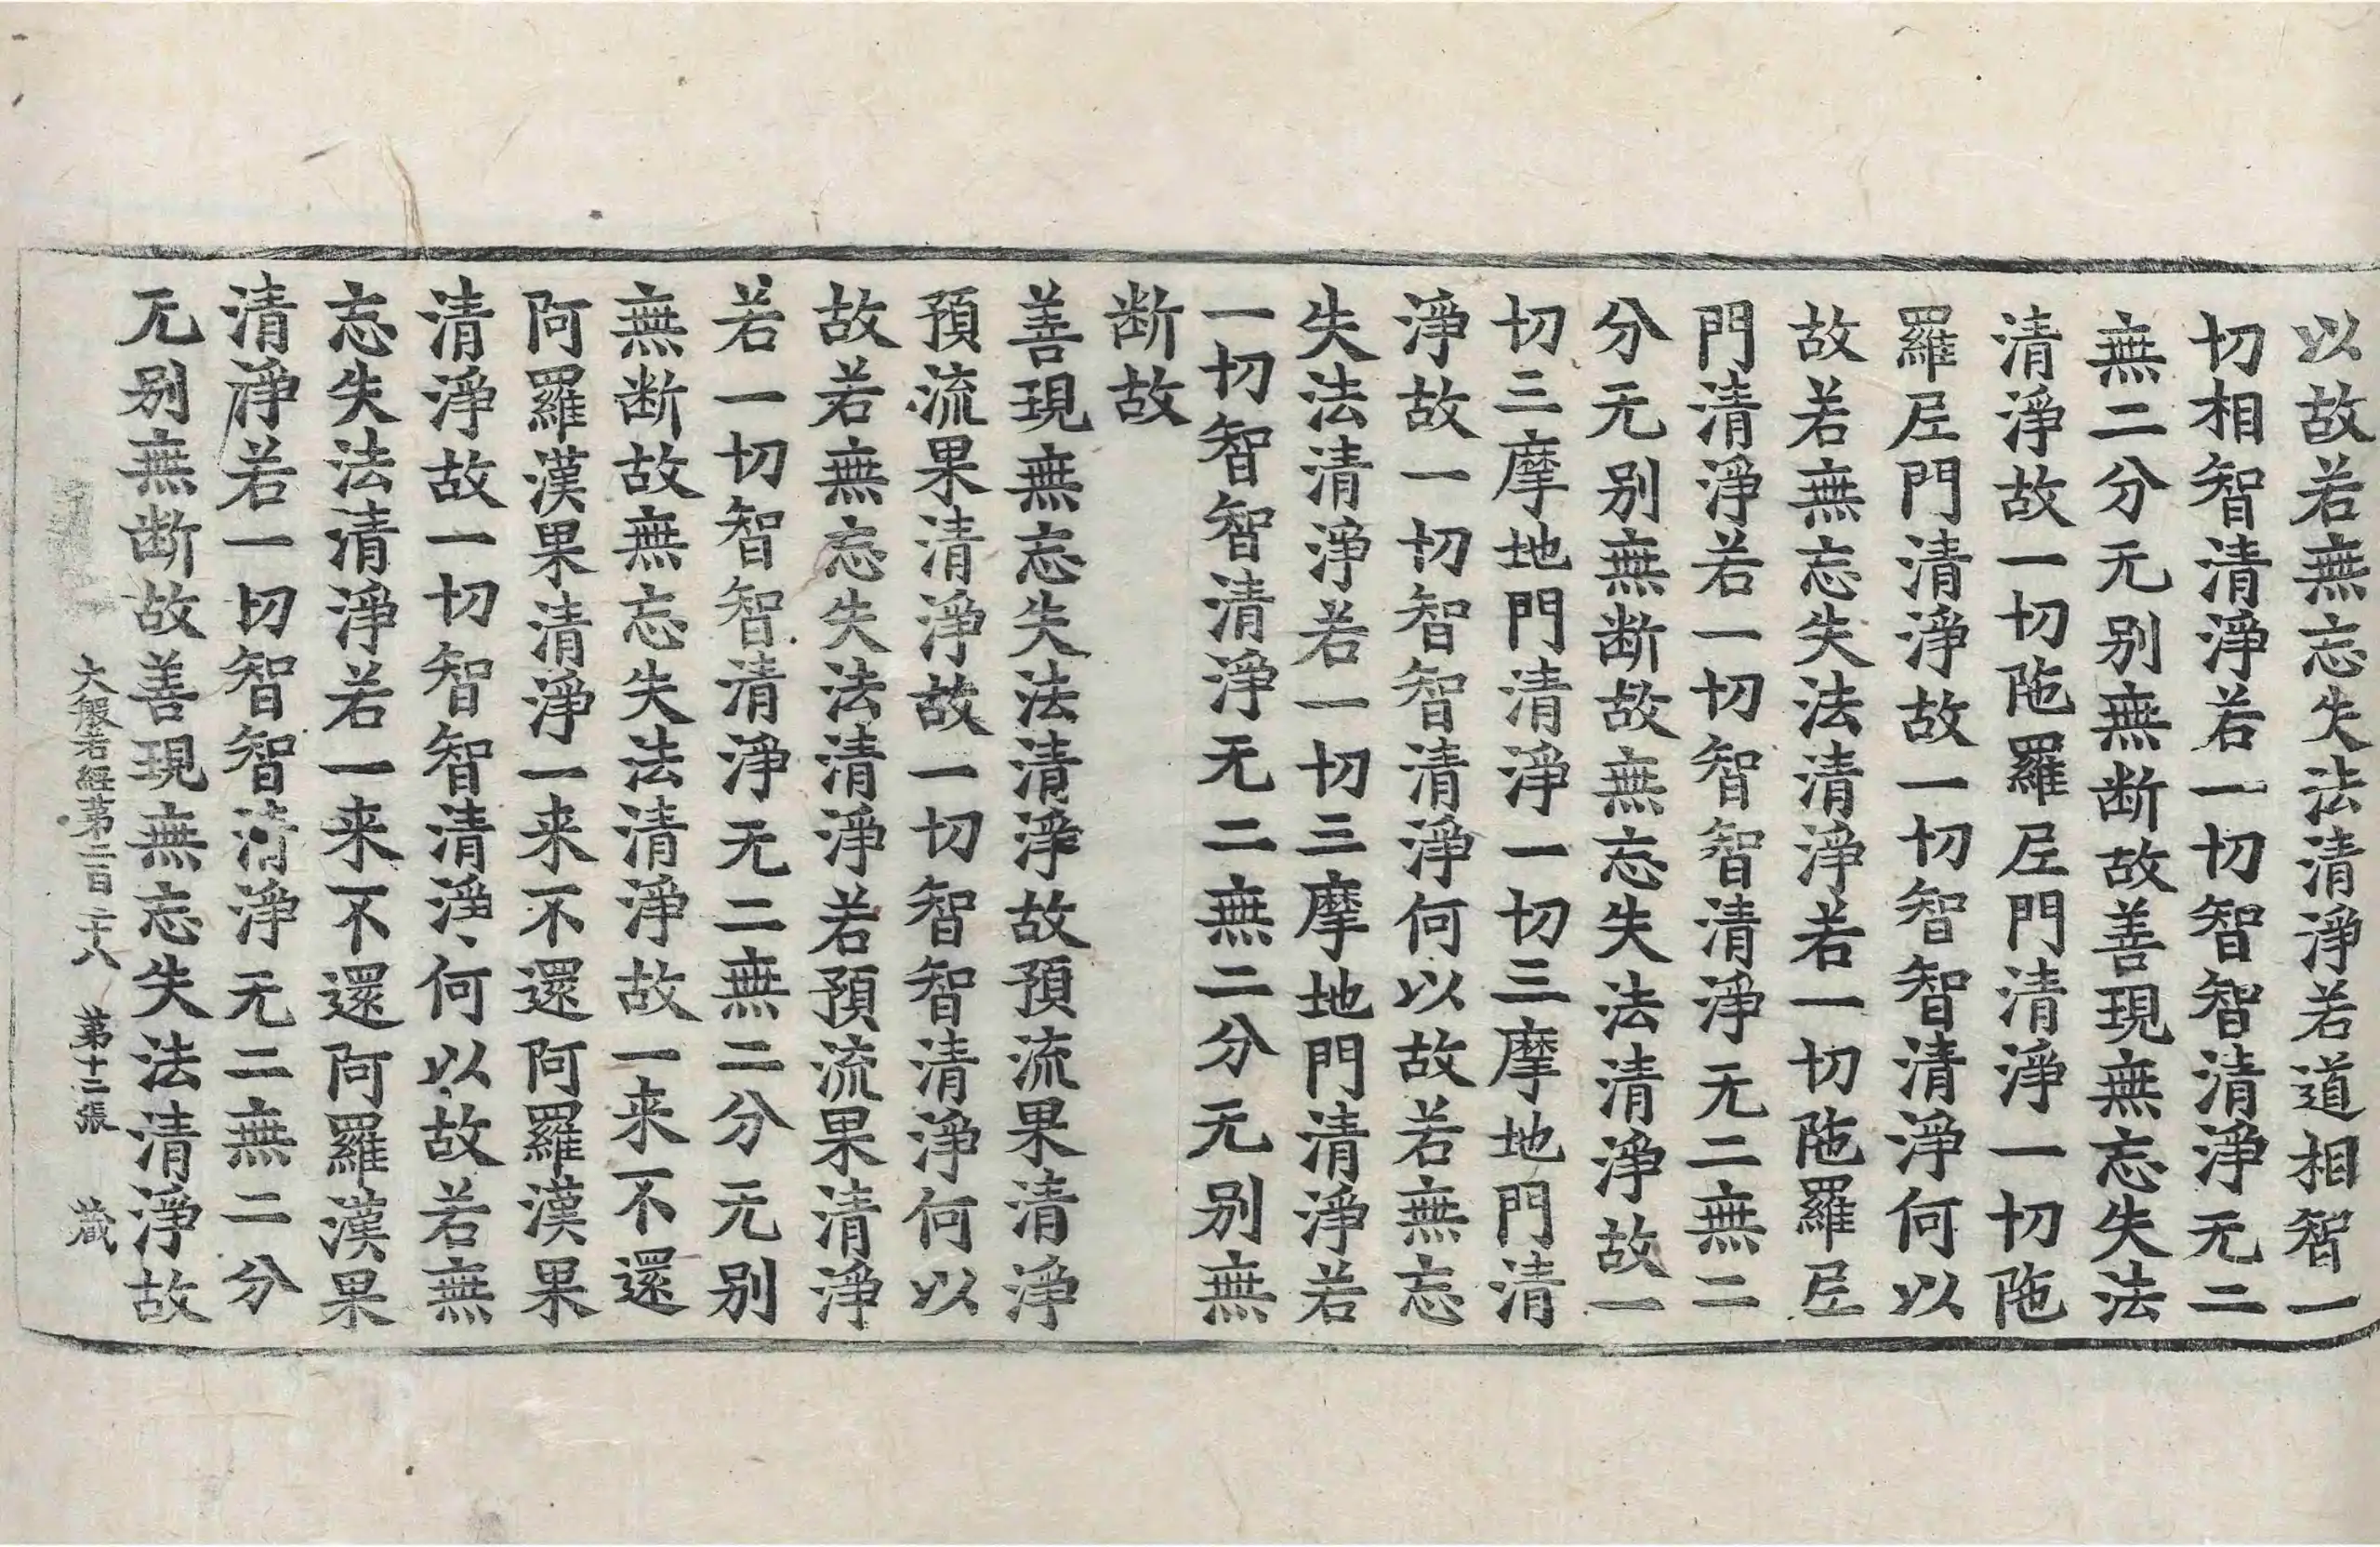 以故若無忘失法清淨若道相智一
切相智清淨若一切智智清淨无二
無二分无别無断故善現無忘失法
清淨故一切陁羅𡰱門清淨一切陁
羅𡰱門清淨故一切智智清淨何以
故若無忘失法清淨若一切陁羅𡰱
門清淨若一切智智清淨无二無二
分无别無断故無忘失法清淨故一
切三摩地門清淨一切三摩地門清
淨故一切智智清淨何以故若無忘
失法清淨若一切三摩地門清淨若
一切智智清淨无二無二分无别無
断故
善現無忘失法清淨故預流果清淨
預流果清淨故一切智智清淨何以
故若無忘失法清淨若預流果清淨
若一切智智清淨无二無二分无别
無断故無忘失法清淨故一来不還
阿羅漢果清淨一来不還阿羅漢果
清淨故一切智智清淨何以故若無
忘失法清淨若一来不還阿羅漢果
清淨若一切智智清淨无二無二分
无别無断故善現無忘失法清淨故
大般若經第二百二十八 第十二張 藏